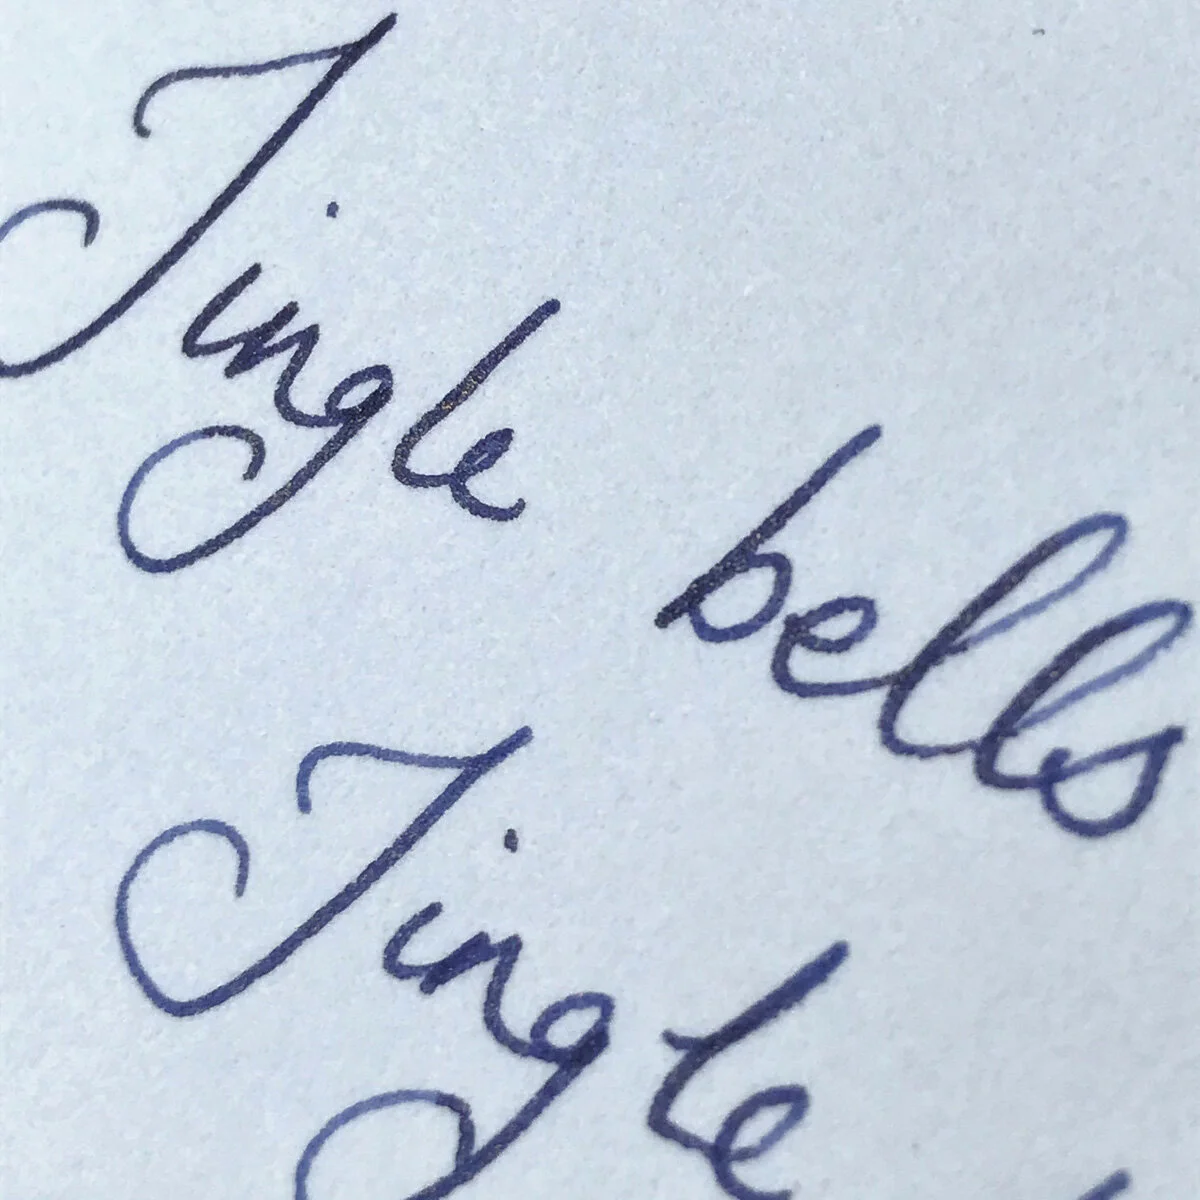 Jingle bells
Jingle